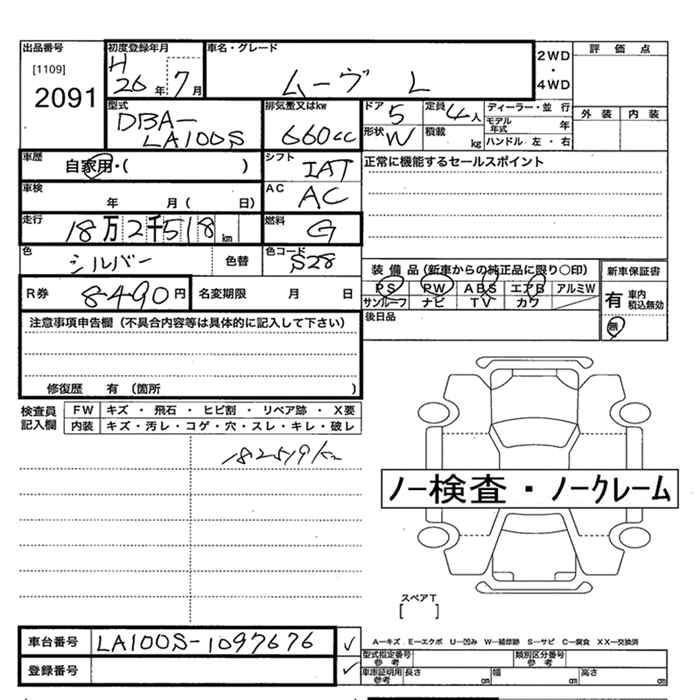 出品番号
[1109]
2091
初度登録年月
H
26年 7月
車名・グレード
ムーヴ L
2WD
・
4WD
評価点
外装 内装
型式
DBA-
LA100S
排気量又はkw
660cc
ドア 5
定員 4人
形状 W
積載 kg
ディーラー・並行
モデル年式 年
ハンドル 左・右
車歴
自家用・( )
シフト
IAT
正常に機能するセールスポイント
車検
年 月( 日)
AC
AC
走行
18万2千518km
燃料
G
色
シルバー
色替
色コード
S28
装備品(新車からの純正品に限り○印)
PS PW ABS エアB アルミW
サンルーフ ナビ TV カワ
後日品
新車保証書
有 車内 税込無効
無
R券
8490円
名変期限 月 日
注意事項申告欄(不具合内容等は具体的に記入して下さい)
修復歴 有(箇所 )
検査員
記入欄
FW キズ・飛石・ヒビ割・リペア跡・X要
内装 キズ・汚レ・コゲ・穴・スレ・キレ・破レ
182519km
ノー検査・ノークレーム
スペアT
[ ]
車台番号 LA100S-1097676 ✓
登録番号 ✓
A―キズ E―エクボ U―凹み W―補修跡 S―サビ C―腐食 XX―交換済
型式指定番号 参考
類別区分番号 参考
車庫証明用 参考
長さ cm 幅 cm 高さ cm